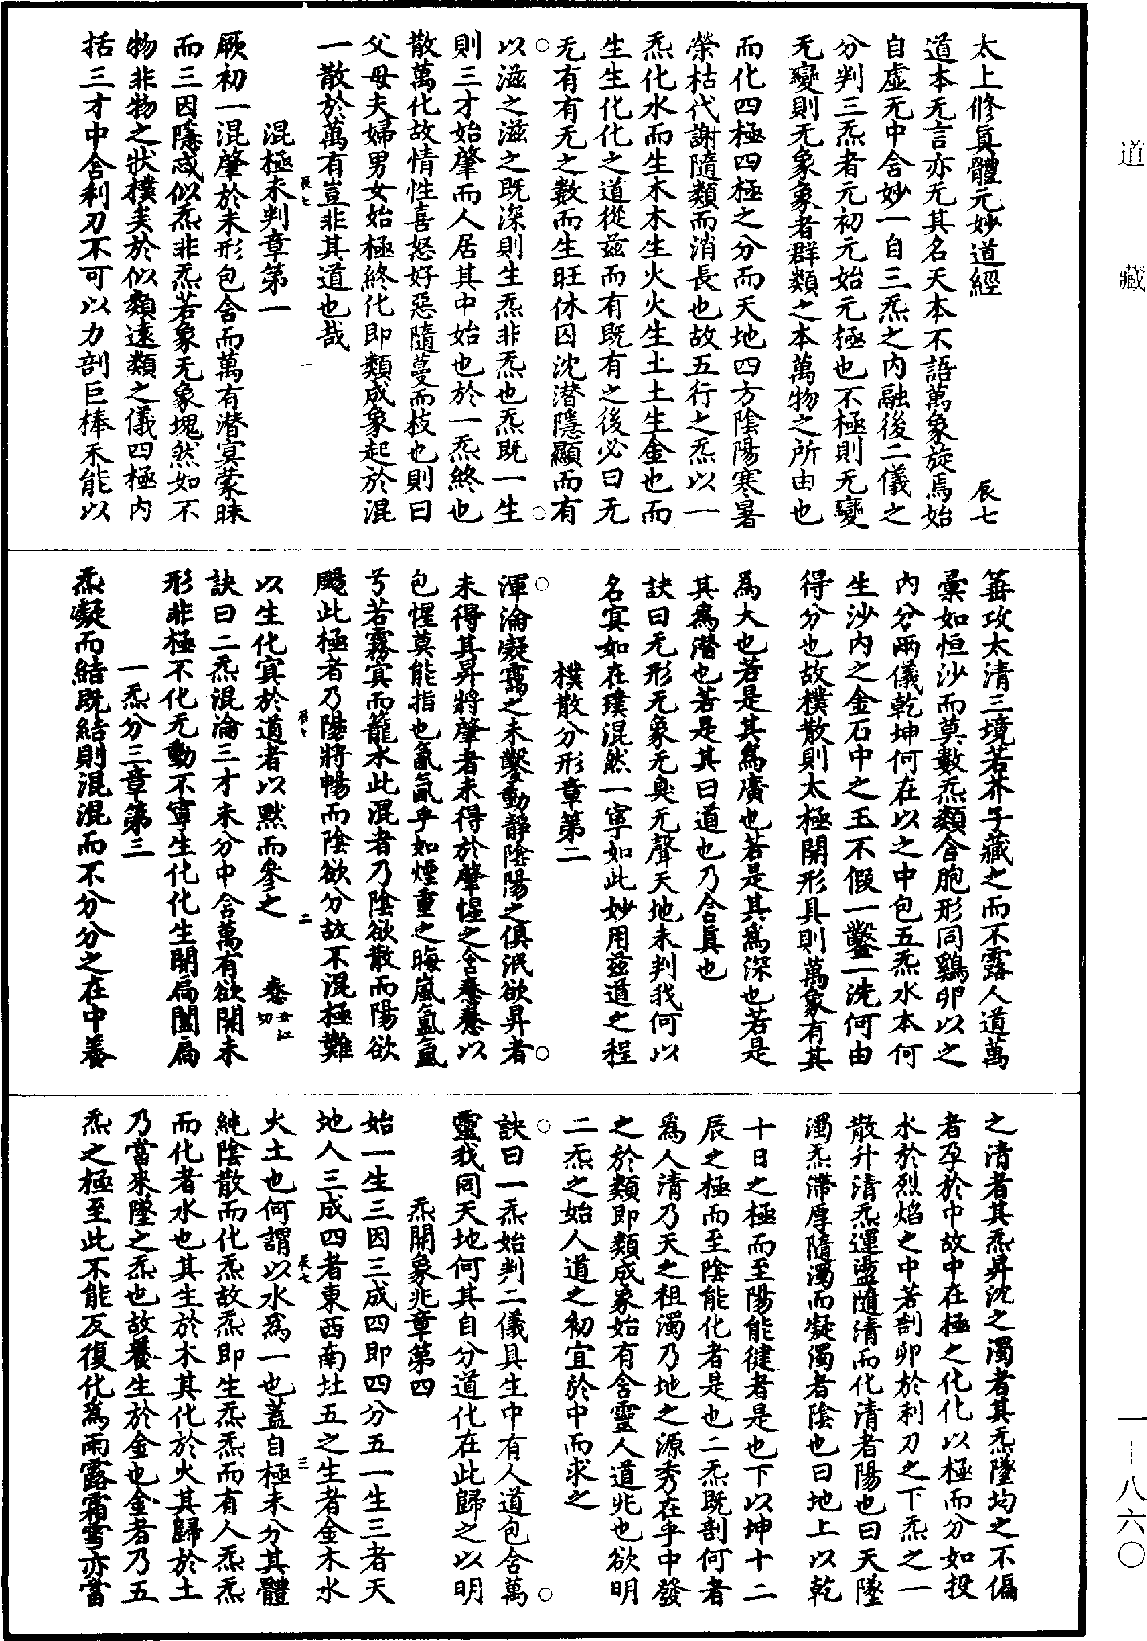 道藏
一—八六〇
太上修真體元妙道經
辰七
道本无言亦无其名天本不語萬象旋焉始
自虛无中含妙一自三炁之內融後二儀之
分判三炁者元初元始元極也不極則无變
无變則无象象者群類之本萬物之所由也
而化四極四極之分而天地四方陰陽寒暑
榮枯代謝隨類而消長也故五行之炁以一
炁化水而生木木生火火生土土生金也而
生生化化之道從茲而有既有之後必曰无
无有有无之數而生旺休囚沈潜隱顯而有
以滋之滋之既深則生炁非炁也炁既一生
則三才始肇而人居其中始也於一炁終也
散萬化故情性喜怒好惡隨蔓而枝也則曰
父母夫婦男女始極終化即類成象起於混
一散於萬有豈非其道也哉
辰七
一
混極未判章第一
厥初一混肇於未形包含而萬有潜寅蒙昧
而三因隱惑似炁非炁若象无象塊然如不
物非物之狀樸矣於似類遠類之儀四極內
括三才中含利刀不可以力剖巨棒禾能以
菙攻太清三境若芥子藏之而不露人道萬
彙如恒沙而莫數炁類合胞形同鷄卵以之
內分兩儀乾坤何在以之中包五炁水本何
生沙內之金石中之玉不假一鑿一洗何由
得分也故樸散則太極開形具則萬象有其
爲大也若是其爲廣也若是其爲深也若是
其爲潜也若是其曰道也乃合真也
訣曰无形无象无臭无聲天地未判我何以
名寘如在璞混然一寧如此妙用茲道之程
樸散分形章第二
渾淪凝藹之未鑿動靜陰陽之俱泯欲昇者
未得其昇將肇者未得於肇惺之含惷惷以
包惺莫能指也氤氳乎如煙重之晦嵐氳氳
兮若霧寘而籠水此混者乃陰欲散而陽欲
颺此極者乃陽將暢而陰欲分故不混極難
辰七
二
以生化寘於道者以黙而參之
惷丑江切
訣曰二炁混淪三才未分中含萬有欲開未
形非極不化无動不寧生化化生開扃闔扃
一炁分三章第三
炁凝而結既結則混混而不分分之在中蓋
之清者其炁昇沈之濁者其炁墜均之不偏
者孕於中故中在極之化化以極而分如投
水於烈焰之中若剖卵於利刀之下炁之一
散升清炁運盪隨清而化清者陽也曰天墜
濁炁滯厚隨濁而凝濁者陰也曰地上以乾
十日之極而至陽能健者是也下以坤十二
辰之極而至陰能化者是也二炁既剖何者
爲人清乃天之祖濁乃地之源秀在乎中發
之於類即類成象始有含靈人道兆也欲明
二炁之始人道之初宜於中而求之
訣曰一炁始判二儀具生中有人道包含萬
靈我同天地何其自分道化在此歸之以明
炁開象兆章第四
始一生三因三成四即四分五一生三者天
地人三成四者東西南北五之生者金木水
辰七
三
火土也何謂以水爲一也蓋自極未分其體
純陰散而化炁故炁即生炁炁而有人炁炁
而化者水也其生於木其化於火其歸於土
乃當來墜之炁也故養生於金也金者乃五
炁之極至此不能反復化爲雨露霜雪亦當